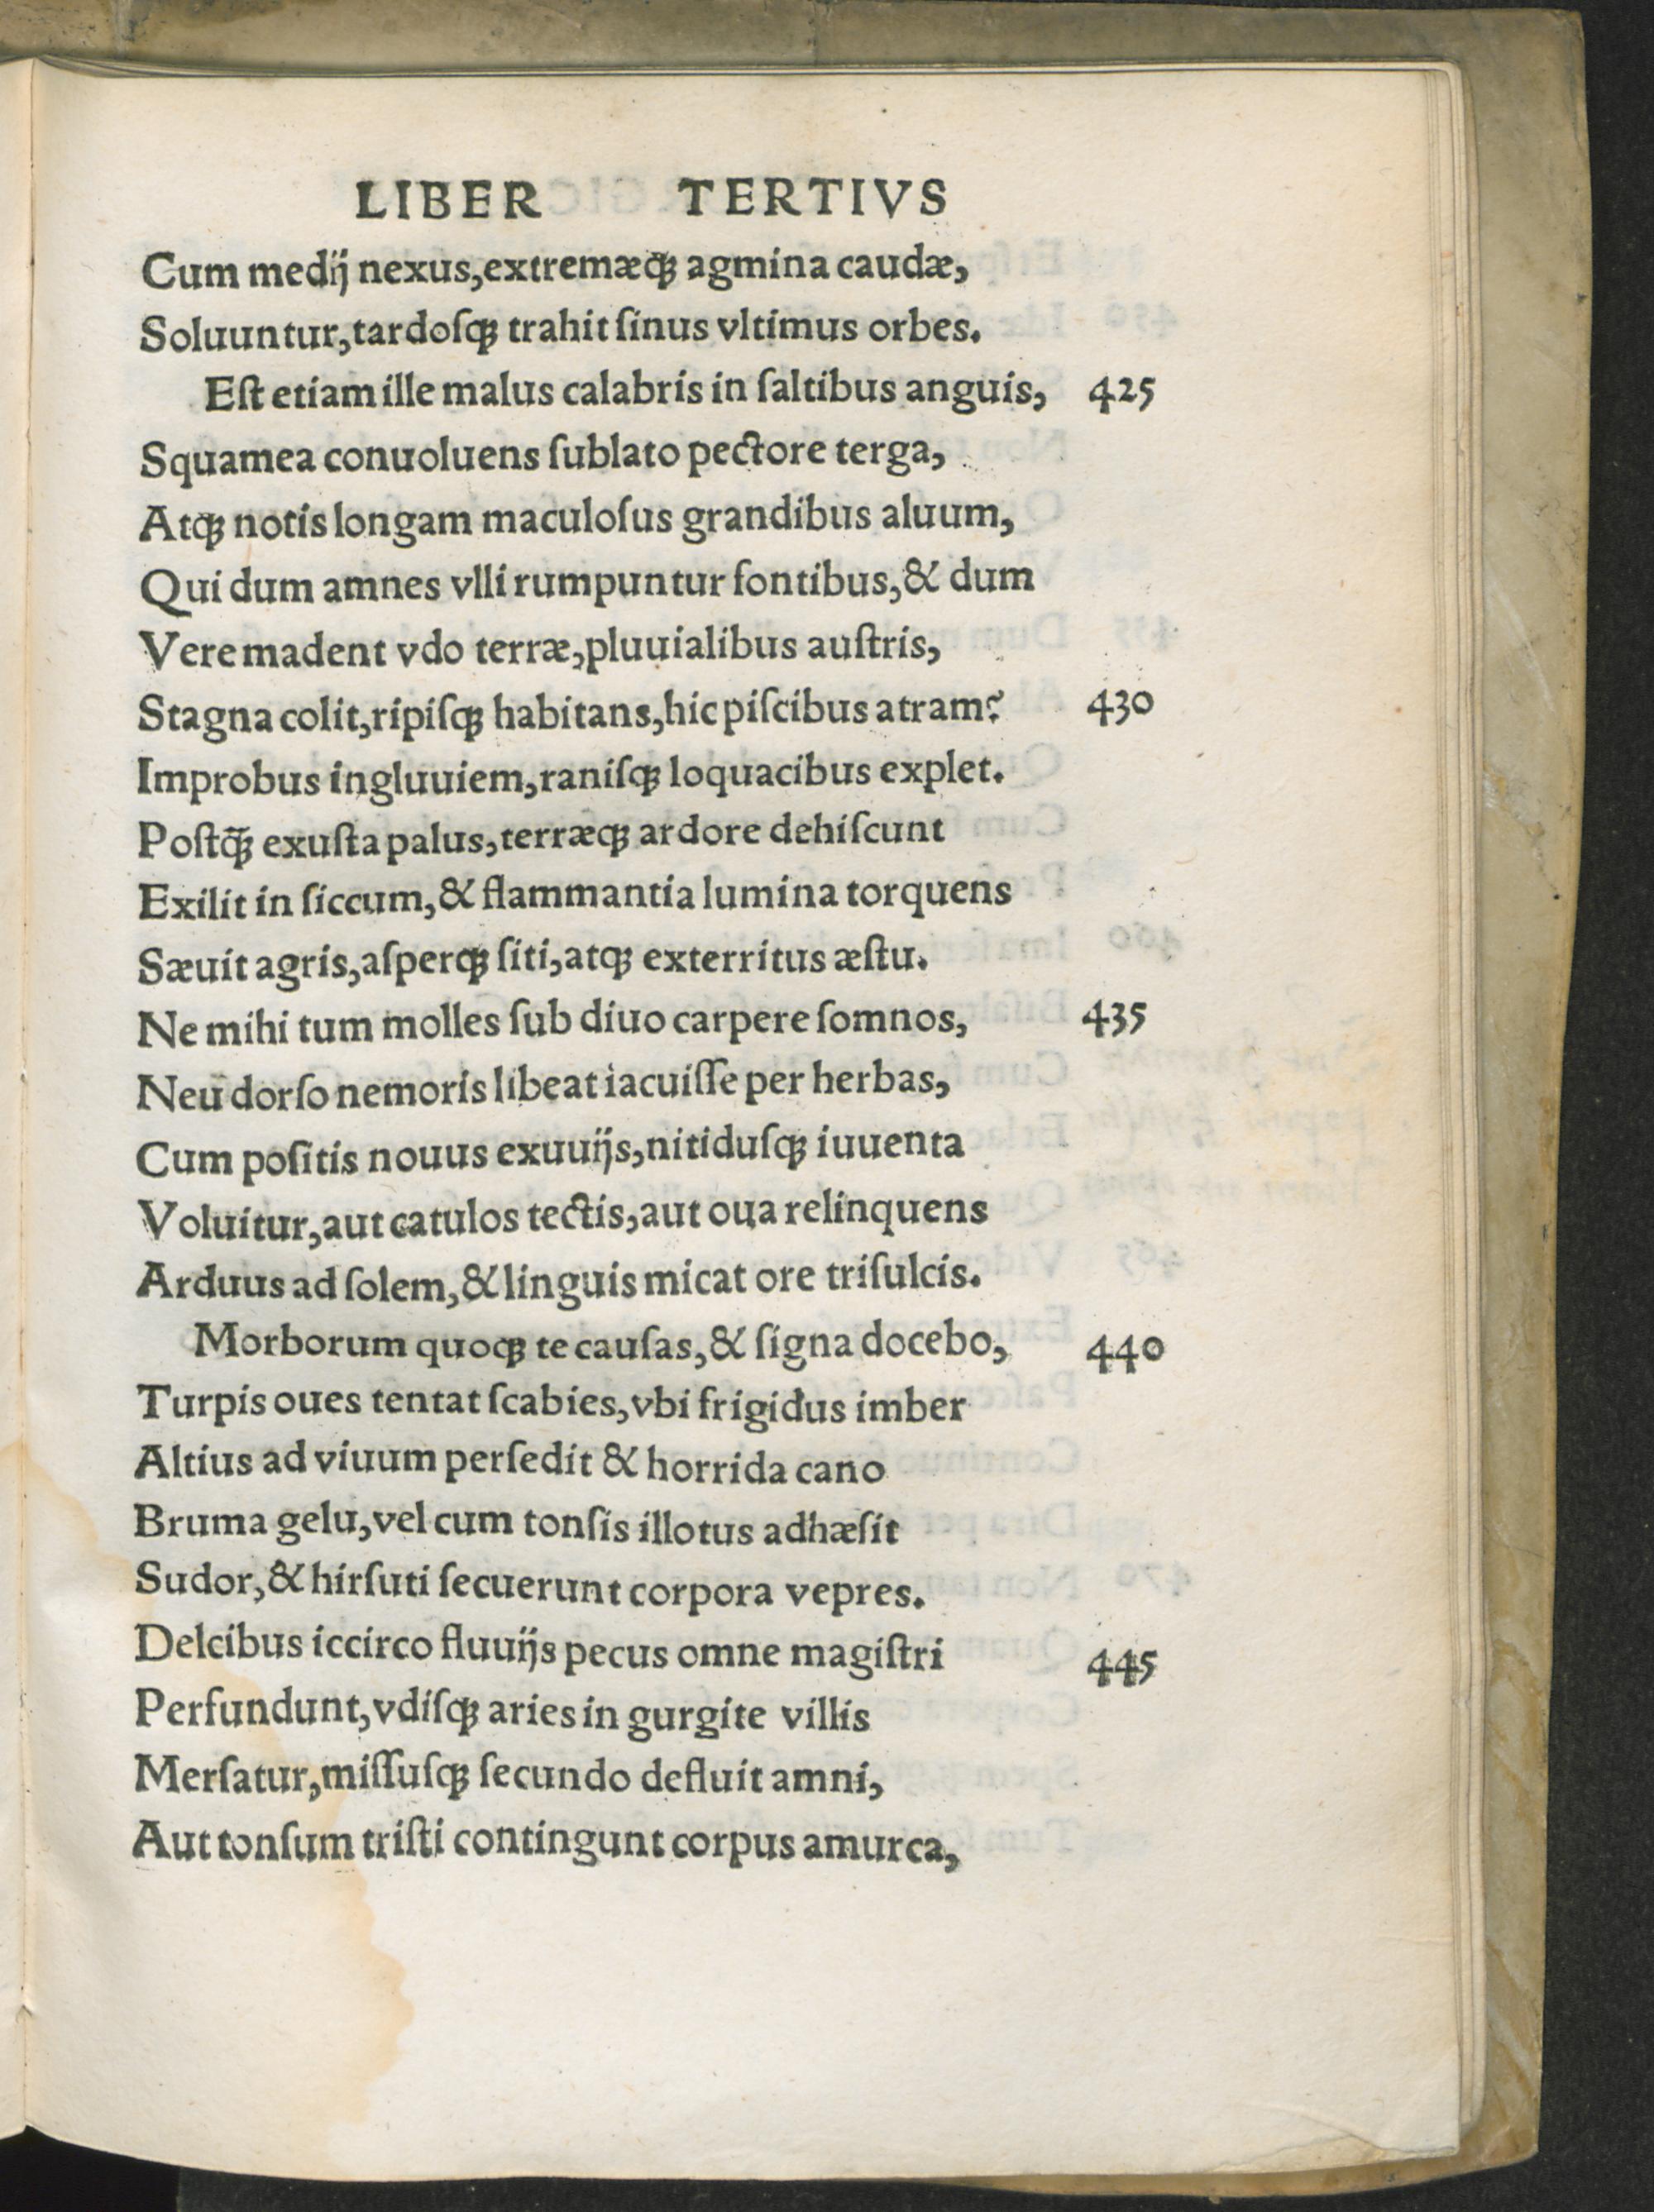 LIBER TERTIVS
Cum medij nexus,extremæqꝫ agmina caudæ,
Soluuntur,tardoſqꝫ trahit ſinus vltimus orbes.
Eſt etiam ille malus calabris in ſaltibus anguis, 425
Squamea conuoluens ſublato pectore terga,
Atqꝫ notis longam maculoſus grandibus aluum,
Qui dum amnes vlli rumpuntur fontibus,& dum
Vere madent vdo terræ,pluuialibus auſtris,
Stagna colit,ripiſqꝫ habitans,hic piſcibus atram? 430
Improbus ingluuiem,raniſqꝫ loquacibus explet.
Poſtq̃ꝫ exuſta palus,terræqꝫ ardore dehiſcunt
Exilit in ſiccum,& flammantia lumina torquens
Sæuit agris,aſperqꝫ ſiti,atqꝫ exterritus æſtu.
Ne mihi tum molles ſub diuo carpere ſomnos, 435
Neu dorſo nemoris libeat iacuiſſe per herbas,
Cum poſitis nouus exuuijs,nitiduſqꝫ iuuenta
Voluitur,aut catulos tectis,aut oua relinquens
Arduus ad ſolem,& linguis micat ore triſulcis.
Morborum quoqꝫ te cauſas,& ſigna docebo, 440
Turpis oues tentat ſcabies,vbi frigidus imber
Altius ad viuum perſedit & horrida cano
Bruma gelu,vel cum tonſis illotus adhæſit
Sudor,& hirſuti ſecuerunt corpora vepres.
Delcibus iccirco fluuijs pecus omne magiſtri 445
Perfundunt,vdiſqꝫ aries in gurgite villis
Merſatur,miſſuſqꝫ ſecundo defluit amni,
Aut tonſum triſti contingunt corpus amurca,